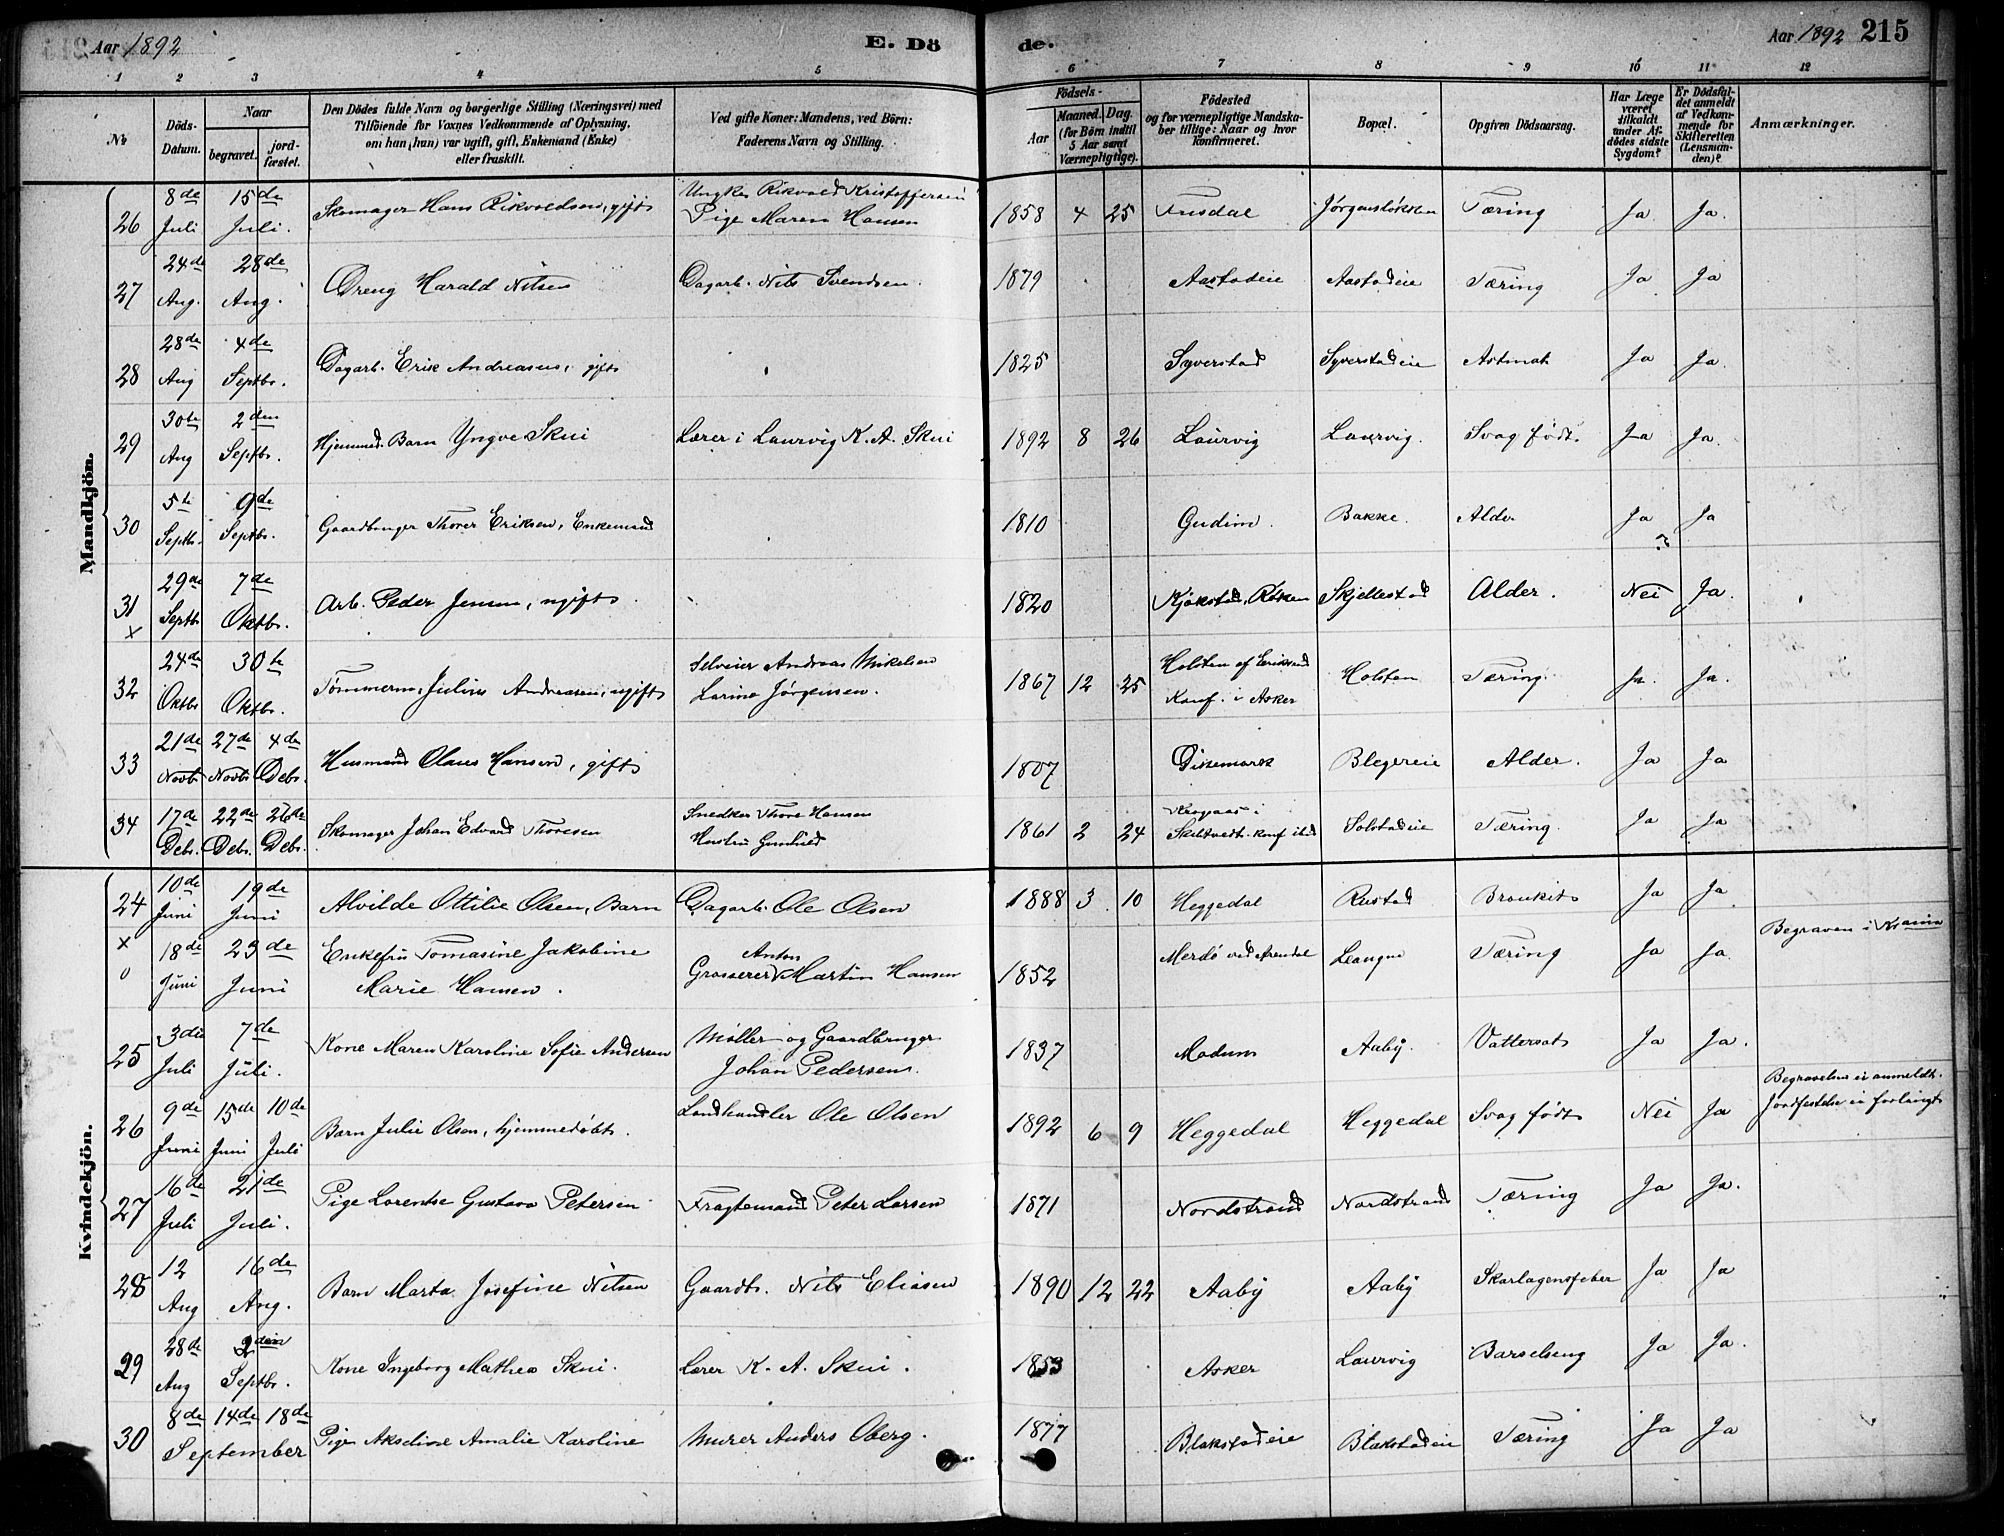 Aar 1892
E. Dö
de.
Aar 1892 215
1 2 3 4 5 6 7 8 9 10 11 12
No
Döds-
Datum.
Naar
begravet. jord-
fæstet.
Den Dödes fulde Navn og borgerlige Stilling (Næringsvei) med
Tilföiende for Voxnes Vedkommende af Oplysning,
om han (hun) var ugift, gift, Enkemand (Enke)
eller fraskilt.
Ved gifte Koner: Mandens, ved Börn:
Faderens Navn og Stilling.
Födsels-
Aar Maaned. Dag.
(for Börn indtil
5 Aar samt
Værnepligtige).
Födested
og for værnepligtige Mandska-
ber tillige: Naar og hvor
konfirmeret.
Bopæl.
Opgiven Dödsaarsag.
Har Læge
været
tilkaldt
under Af-
dödes sidste
Sygdom?
Er Dödsfal-
det anmeldt
af Vedkom-
mende for
Skifteretten
(Lensman-
den)?
Anmærkninger.
Mandkjön.
26 8de Juli 15de Juli. Skomager Hans Rikvoldsen, gift Ungkar Rikvold Kristoffersen
Pige Maren Hansen 1858 4 25 Tusdal Jørgensløkken Tæring Ja Ja.
27 24de Aug. 28de Aug. Dreng Harald Nilsen Dagarb. Nils Svendsen. 1879 Aastadeie Aastadeie Tæring Ja Ja
28 28de Aug 4de Septbr. Dagarb. Erik Andreasen, gift 1825 Syverstad Syverstadeie Astmat Ja Ja.
29 30te Aug 2den Septbr. Hjemmed. Barn Yngve Skui Lærer i Laurvig K. A. Skui 1892 8 26 Laurvig Laurvig. Svag født. Ja Ja.
30 5te Septbr. 9de Septbr. Gaardbruger Thorer Eriksen, Enkemand 1810 Gudim. Bakke. Alder Ja ? Ja
31 x 29de Septbr 7de Oktbr. Arb. Peder Jensen, ugift 1820 Kjøkstad, Røken Skjellestad Alder. Nei Ja.
32 24de Oktbr 30te Oktbr. Tømmerm. Julius Andreasen, ugift Selveier Andreas Mikelsen
Larine Jørgensen. 1867 12 25 Holsten af Eriksrud
Konf. i Asker Holsten Tæring. Ja. Ja.
33 21de Novbr 27de Novbr 4de Debr. Husmand Olaus Hansen, gift 1807 Dikemark Blegereie Alder. Ja Ja
34 17de Debr. 22de Debr. 26de Debr. Skomager Johan Edvard Thoresen Snedker Thore Hansen
Hustru Gunhild 1861 2 24 Kragaas i
Skiltvedt. konf ibd Solstadeie Tæring. Ja Ja
Kvindekjön.
24 x 10de Juni 19de Juni Alvilde Ottilie Olsen, Barn Dagarb. Ole Olsen 1888 3 10 Heggedal Rustad Bronkit Ja Ja
0 18de Juni 23de Juni Enkefru Tomasine Jakobine
Marie Hansen. Anton
Grosserer Martin Hansen 1852 Merdø ved Arendal Leangen Tæring Ja Ja. Begraven i Kr.ania
25 3die Juli 7de Juli. Kone Maren Karoline Sofie Andersen Møller og Gaardbruger
Johan Pedersen. 1837 Modum Aaby. Vattersot Ja Ja.
26 9de Juni 15de Juni 10de Juli Barn Julie Olsen, hjemmedøbt. Landhandler Ole Olsen 1892 6 9 Heggedal Heggedal Svag født Nei Ja Begravelse ei anmeldt.
Jordfestelse ei forlangt
27 16de Juli 21de Juli. Pige Lorentse Gustava Petersen Fragtemand Peter Larsen 1871 Nordstrand Nordstrand Tæring Ja Ja.
28 12 Aug 16de Aug. Barn Marta Josefine Nilsen Gaardb. Nils Eliasen 1890 12 22 Aaby Aaby Skarlagensfeber Ja Ja
29 28de Aug 2den Septbr. Kone Ingeborg Mathea Skui. Lærer K. A. Skui. 1853 Asker Laurvig Barselseng Ja Ja.
30 8de 14de 18de
September Pige Akseline Amalie Karoline Murer Anders Oberg. 1877 Blakstadeie Blakstadeie Tæring Ja Ja